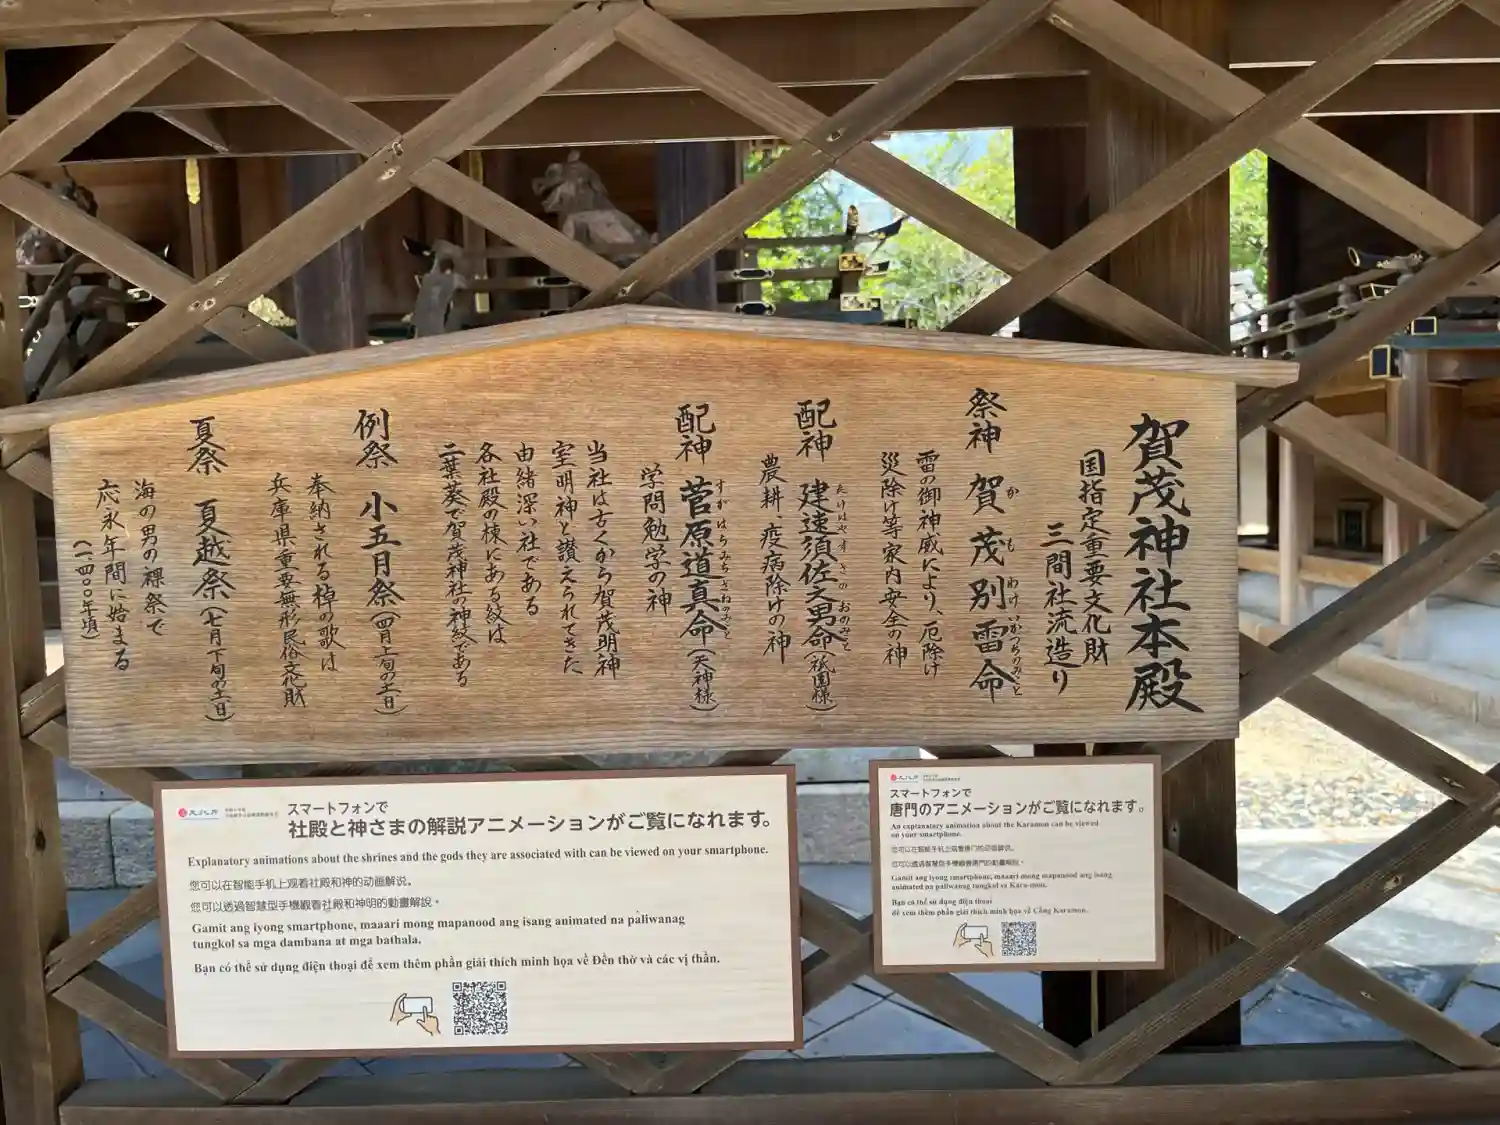 賀茂神社本殿
国指定重要文化財
三間社流造り
祭神 賀茂別雷命
か も わけ いかづちのみこと
雷の御神威により、厄除け
災除け等家内安全の神
配神 建速須佐之男命(祇園様)
たけはやすさのおのみこと
農耕、疫病除けの神
配神 菅原道真命(天神様)
すがはらみちざねのみこと
学問勉学の神
当社は古くから賀茂明神
室明神と讃えられてきた
由緒深い社である
各社殿の棟にある紋は
二葉葵で賀茂神社の神紋である
例祭 小五月祭(四月上旬の土日)
奉納される棹の歌は
兵庫県重要無形民俗文化財
夏祭 夏越祭(七月下旬の土日)
海の男の裸祭で
応永年間に始まる
(一四〇〇年頃)
文化庁
スマートフォンで
社殿と神さまの解説アニメーションがご覧になれます。
Explanatory animations about the shrines and the gods they are associated with can be viewed on your smartphone.
您可以在智能手机上观看社殿和神的动画解说。
您可以透過智慧型手機觀看社殿和神明的動畫解說。
Gamit ang iyong smartphone, maaari mong mapanood ang isang animated na paliwanag
tungkol sa mga dambana at mga bathala.
Bạn có thể sử dụng điện thoại để xem thêm phần giải thích minh họa về Đền thờ và các vị thần.
文化庁
スマートフォンで
唐門のアニメーションがご覧になれます。
An explanatory animation about the Karamon can be viewed
on your smartphone.
您可以在智能手机上观看唐门的动画解说。
您可以透過智慧型手機觀看唐門的動畫解說。
Gamit ang iyong smartphone, maaari mong mapanood ang isang
animated na paliwanag tungkol sa Kara-mon.
Bạn có thể sử dụng điện thoại
để xem thêm phần giải thích minh họa về Cổng Karamon.